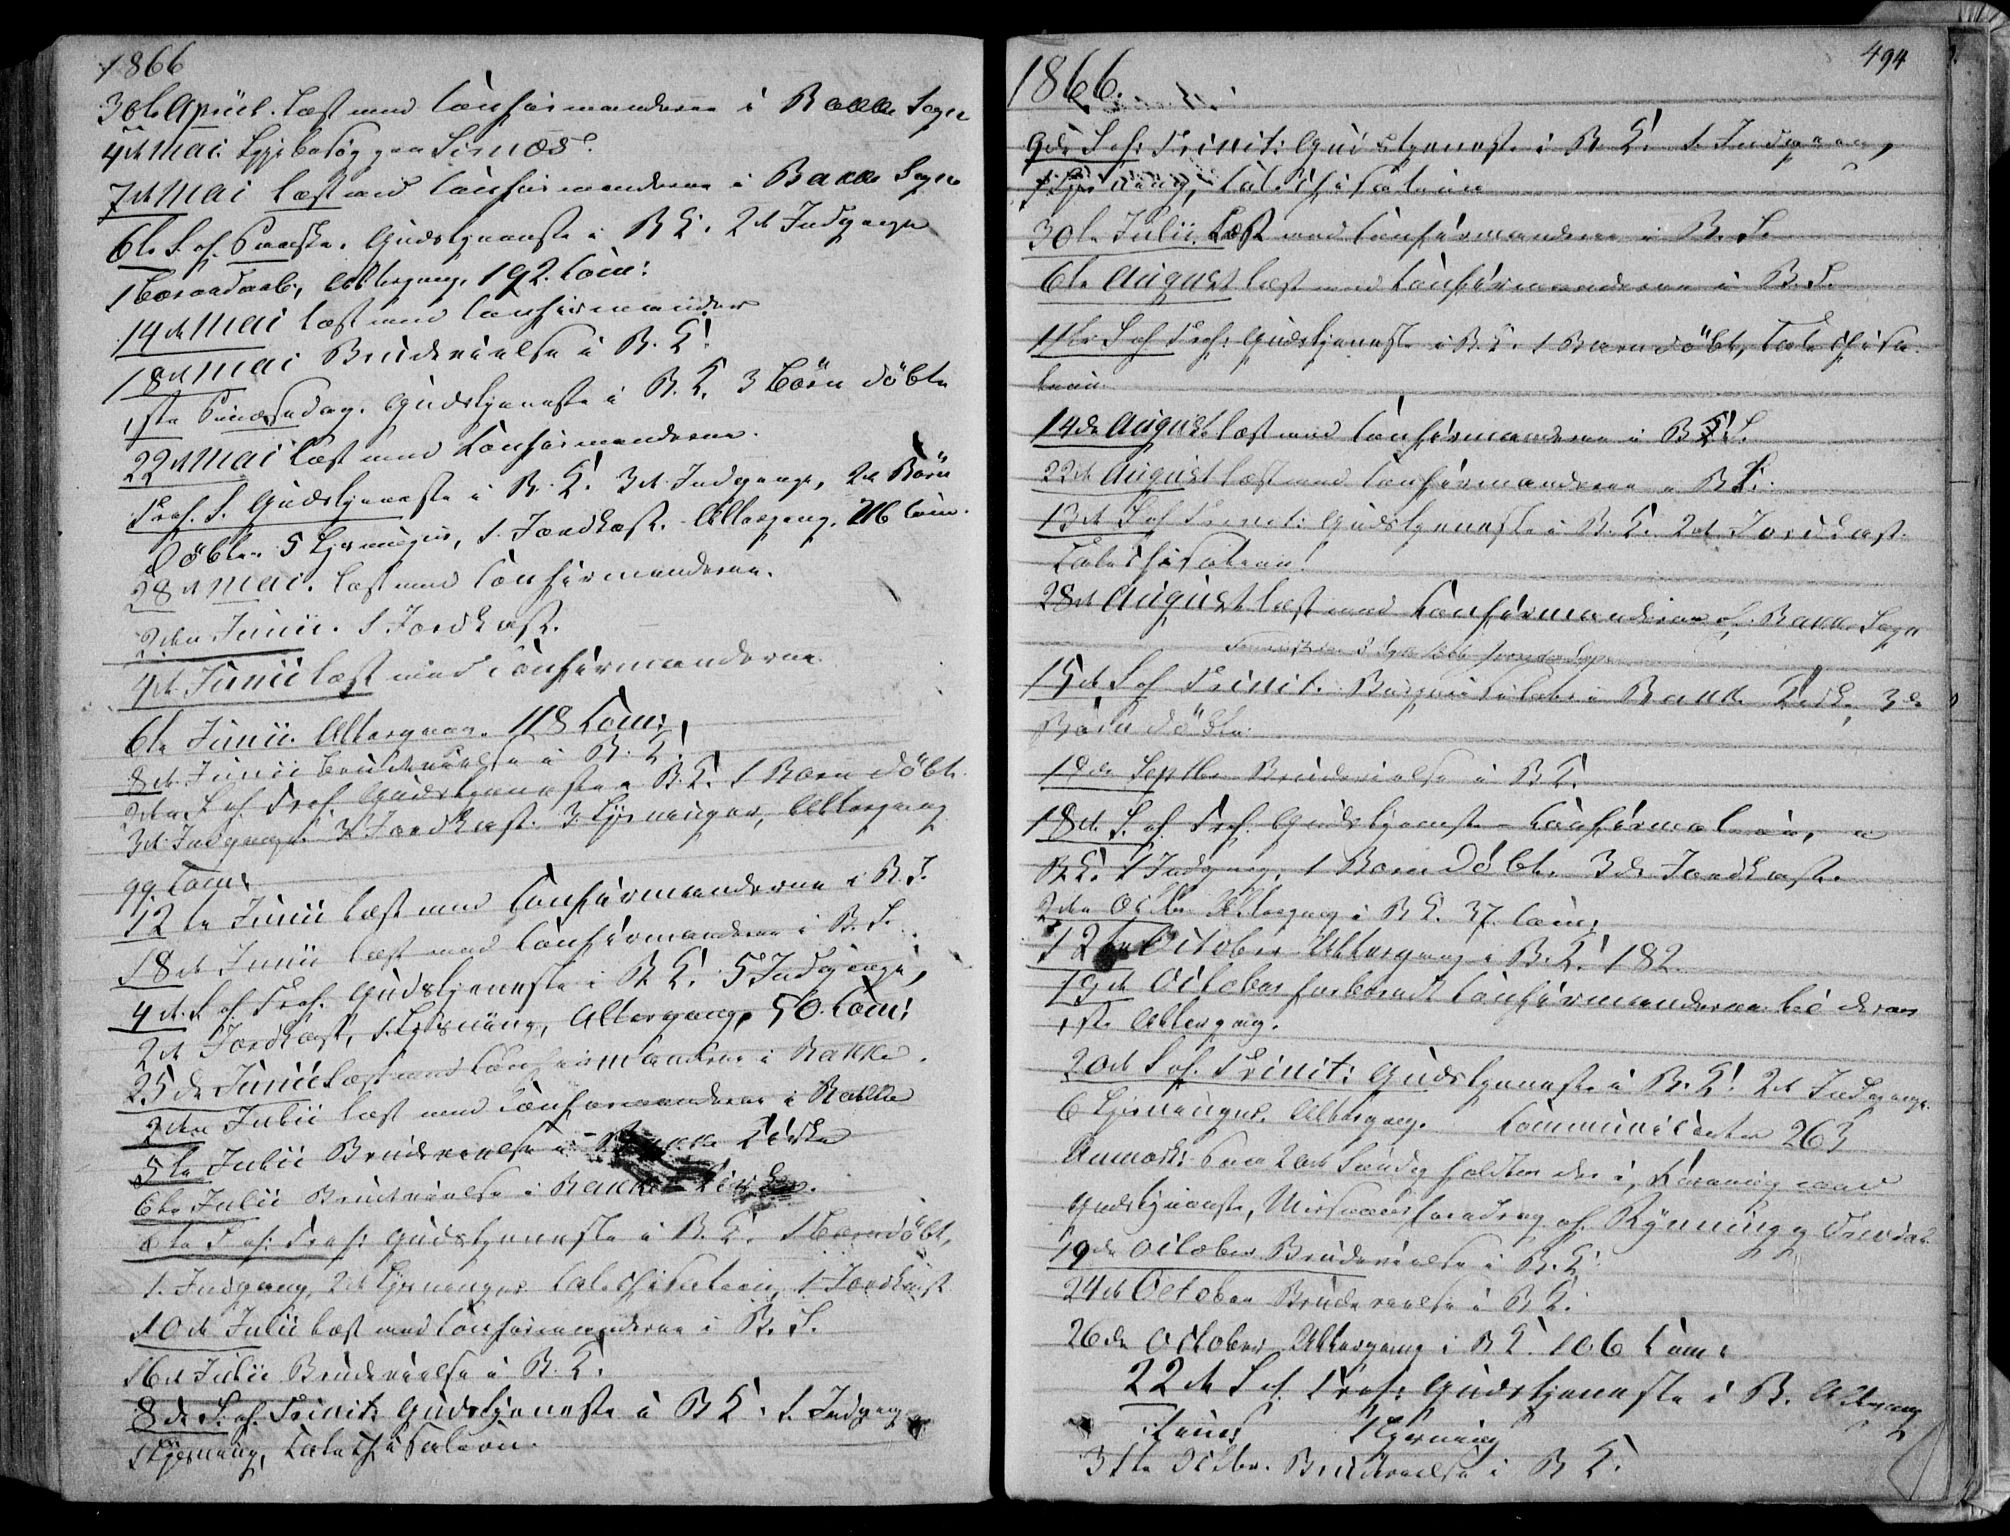 1866
30te April. læst med Confirmanderne i Bakke Sogn
4de Mai. Sygebesøg paa Sirnæs.
7de Mai læst med Confirmanderne i Bakke Sogn
6te S. ef. Paaske. Gudstjeneste i B K. 2de Indgange
1 Barnedaab, Altergang, 192 Com:
14de Mai læst med Confirmander
18de Mai Brudevielse i B. K.
1ste Pindsedag. Gudstjeneste i B. K. 3 Børn døbte
22de Mai læst med Confirmanderne.
Tref. S. Gudstjeneste i B. K. 3de Indgange, 2de Børn
Døbte. 5 Lysninger, 1 Jordkast. Altergang. 216 Com.
28de Mai. læst med Confirmanderne.
2den Junii. 1 Jordkast.
4de Junii læst med Confirmanderne
6te Junii. Altergang. 118 Com:
8de Junii Brudevielse i B. K.
2den S. ef. Tref. Gudstjeneste i B. K. 1 Barn døbt.
3de Indgange. 3 Jordkast. 3 Lysninger, Altergang
99 Com:
12te Junii læst med Confirmanderne i B. S.
18de Junii læst med Confirmanderne i B. S.
4de S. ef. Tref. Gudstjeneste i B. K. 5 Indgange,
2de Jordkast, 1 Lysning, Altergang, 50 Com:
25de Junii læst med Confirmanderne i Bakke.
2den Julii læst med Confirmanderne i Bakke
5te Julii Brudevielse i Bakke Kirke
6te Julii Brudevielse i Bakke Kirke.
6te S. ef. Tref: Gudstjeneste i B. K. 1 Barn døbt,
1. Indgang, 2de Lysninger Catechisation, 1 Jordkast
10de Julii læst med Confirmanderne i B. S.
16de Julii Brudevielse i B. K.
8de S. ef. Trinit: Gudstjeneste i B K. 1. Indgang
1 Lysning, Catechisation.
494
1866.
9de S. ef: Trinit: Gudstjeneste i B. K. 1. Indgang,
1 Lysning, Catechisation
30te Julii. Læst med Confirmanderne i B. S.
6te August læst med Confirmanderne i B. S.
11te S. ef Tref: Gudstjeneste i B. K. 1 Barn døbt, Catechisa-
tion
14de August læst med Confirmanderne i B S.
22de August læst med Confirmanderne i B S.
13de S. ef Trinit: Gudstjeneste i B. K. 2de Jordkast.
Catechisation.
28de August læst med Confirmanderne af Bakke Sogn
15de S. ef Trinit. i Bakke Kirke, 3de
Børn døbte.
19de Septbr Brudevielse i B K.
18de S. ef. Tref. Gudstjeneste Confirmation, i
B. K. 1 Indgang, 1 Barn Døbt. 3de Jordkast.
2den Octbr Altergang i B K. 37 Com:
12te October Altergang i B. K. 182
19de October forberedt Confirmanderne til deres
1ste Altergang.
20de S. ef. Trinit: Gudstjeneste i B. K. 2de Indgange
6 Lysninger. Altergang. Communicanter 263
Anmærk: Paa 20de Søndag holdtes der i med
Gudstjeneste, foredrag af Rynning
19de October Brudevielse i B. K.
24de October Brudevielse i B K.
26de October Altergang i B K. 106 Com:
22de S. ef. Tref: Gudstjeneste i B. Altergang
1 Lysning
31te Octbr. Brudevielse i B K.